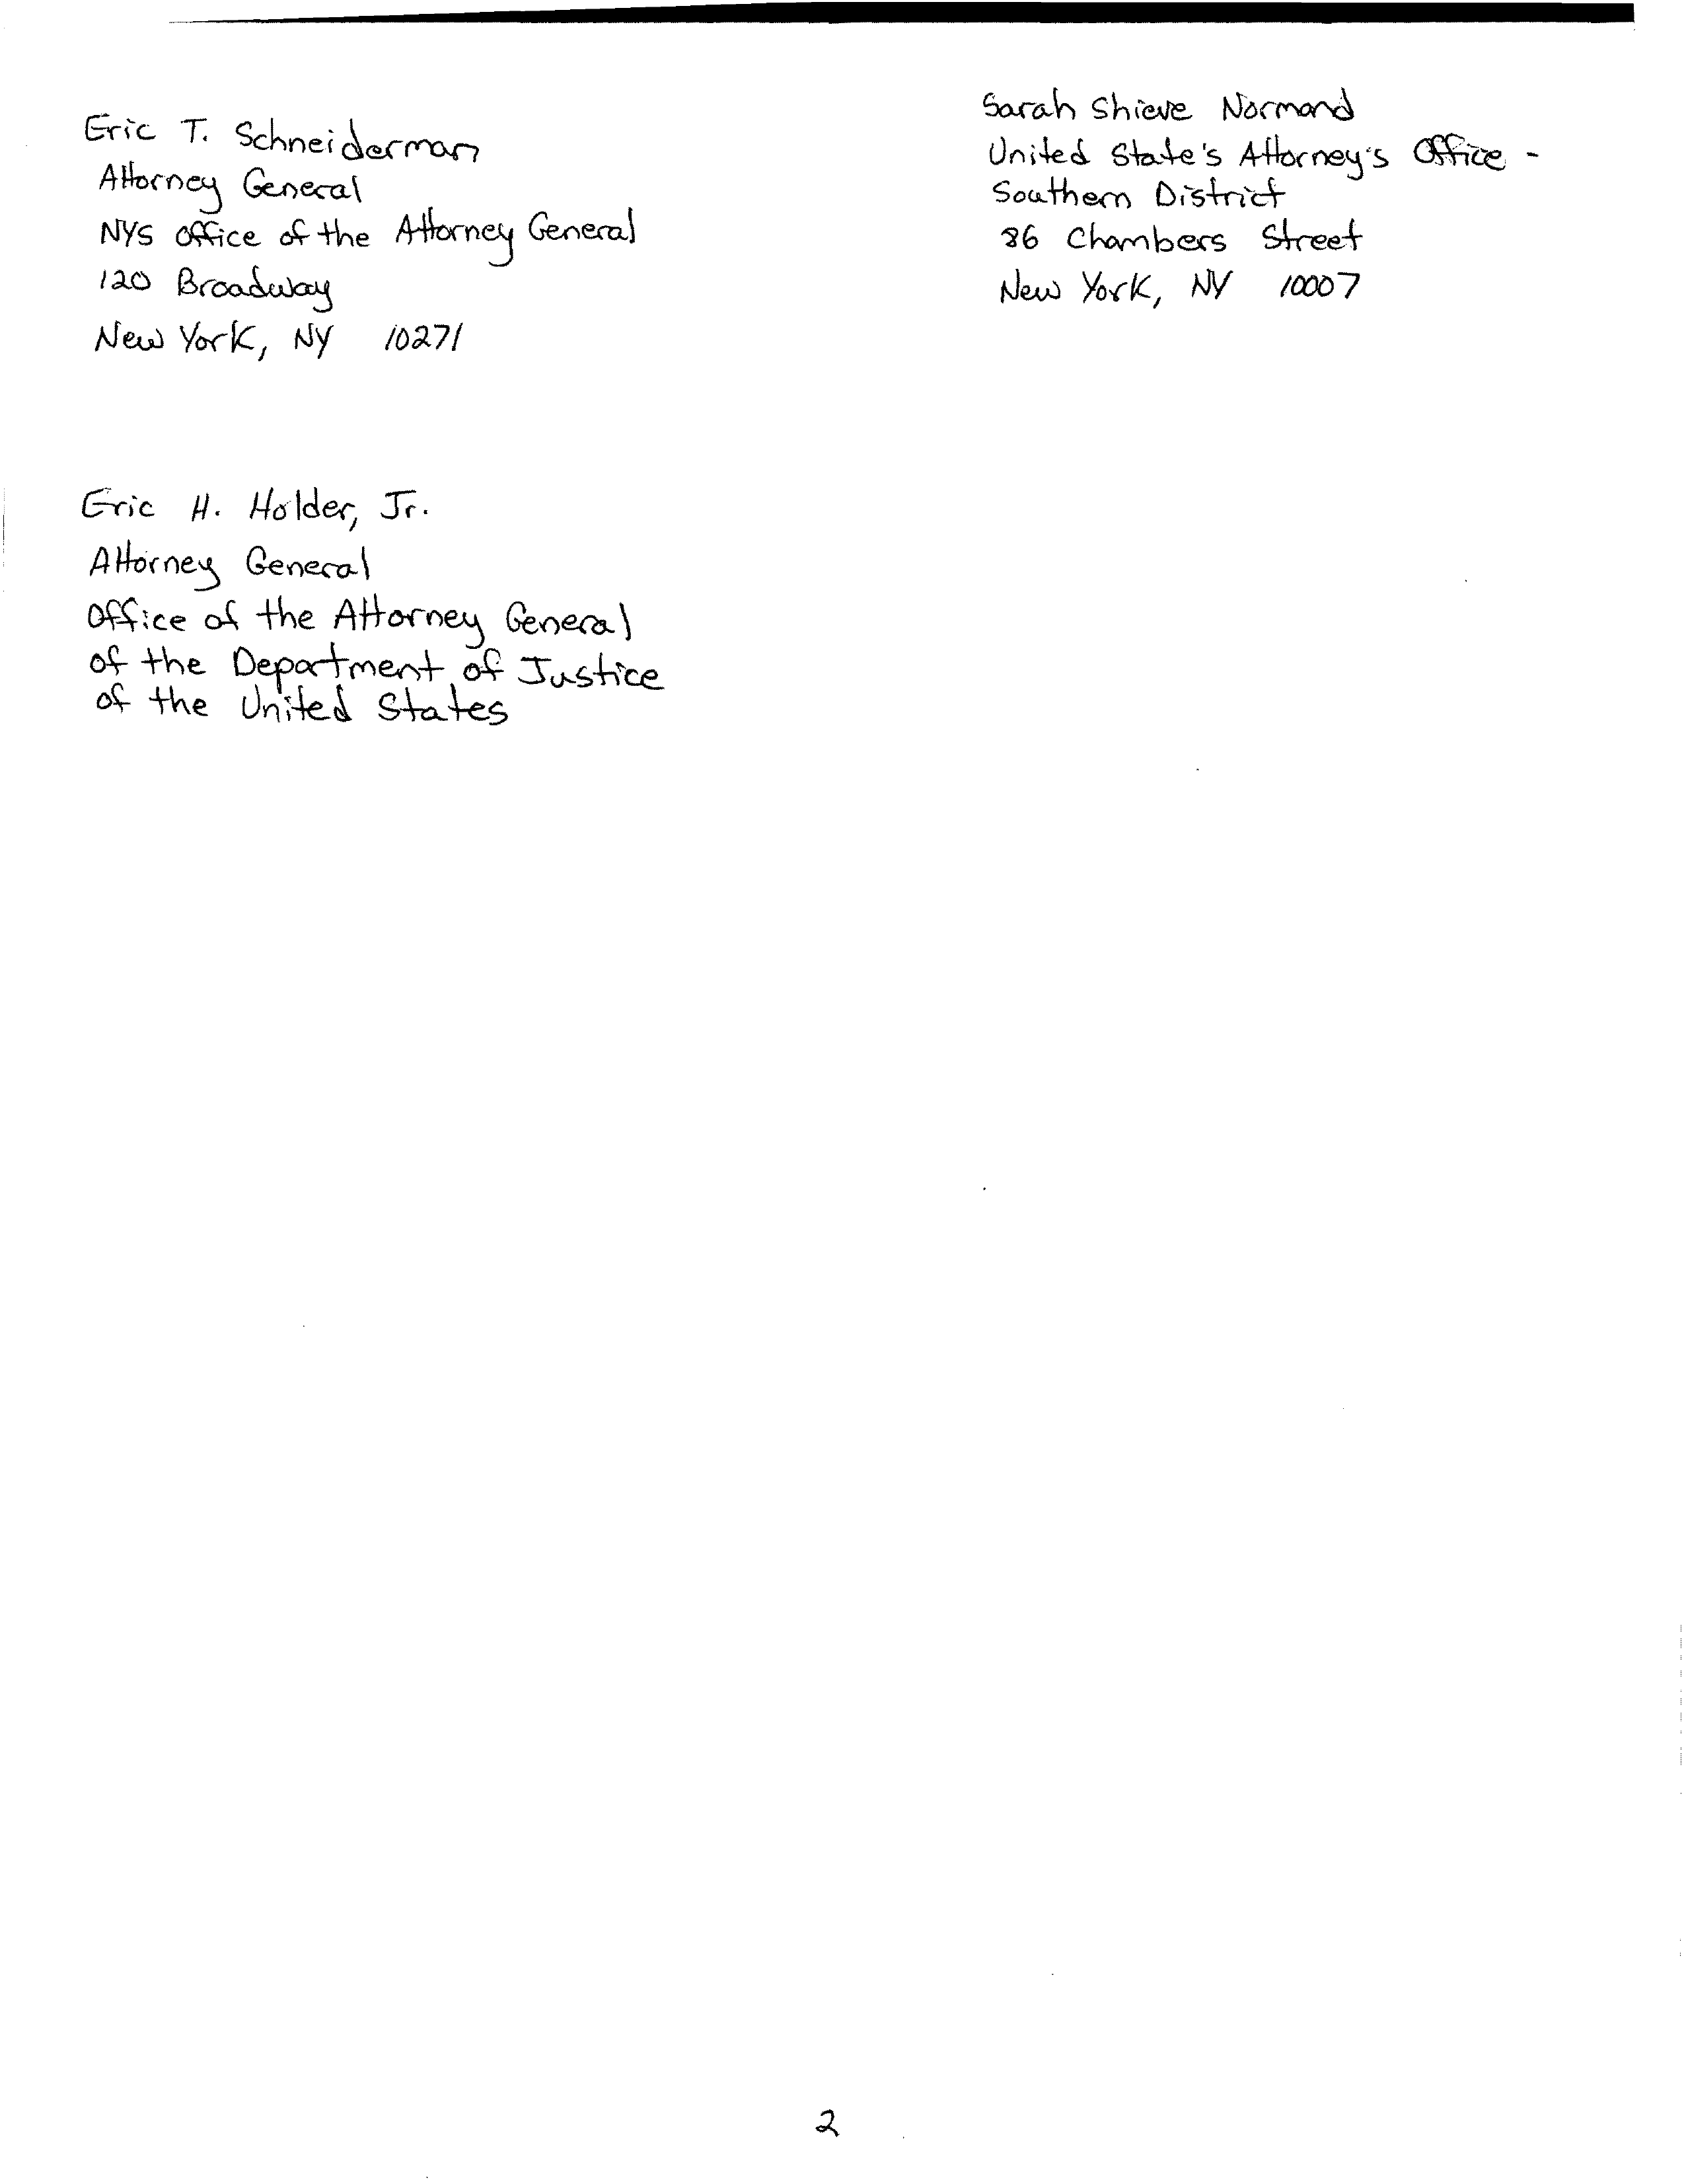 Eric T. Schneiderman
Attorney General
NYS Office of the Attorney General
120 Broadway
New York, NY 10271
Sarah Shieve Normand
United State's Attorney's Office -
Southern District
86 Chambers Street
New York, NY 10007
Eric H. Holder, Jr.
Attorney General
Office of the Attorney General
of the Department of Justice
of the United States
2